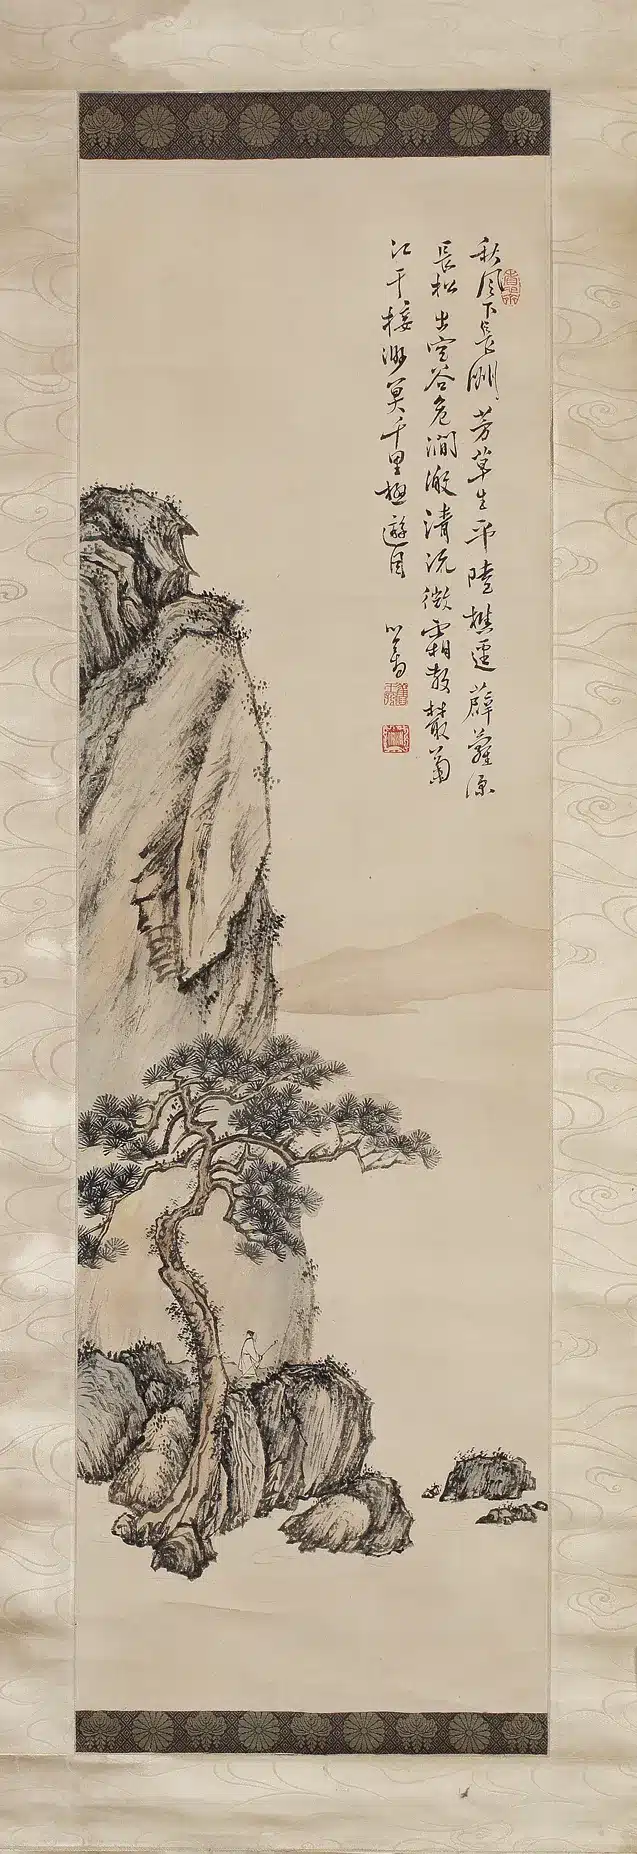 秋風下長洲芳草生平陸樵逕薜蘿深
長松出空谷危澗激清流微霜散叢菊
江干接渺冥千里極遊目 心畬